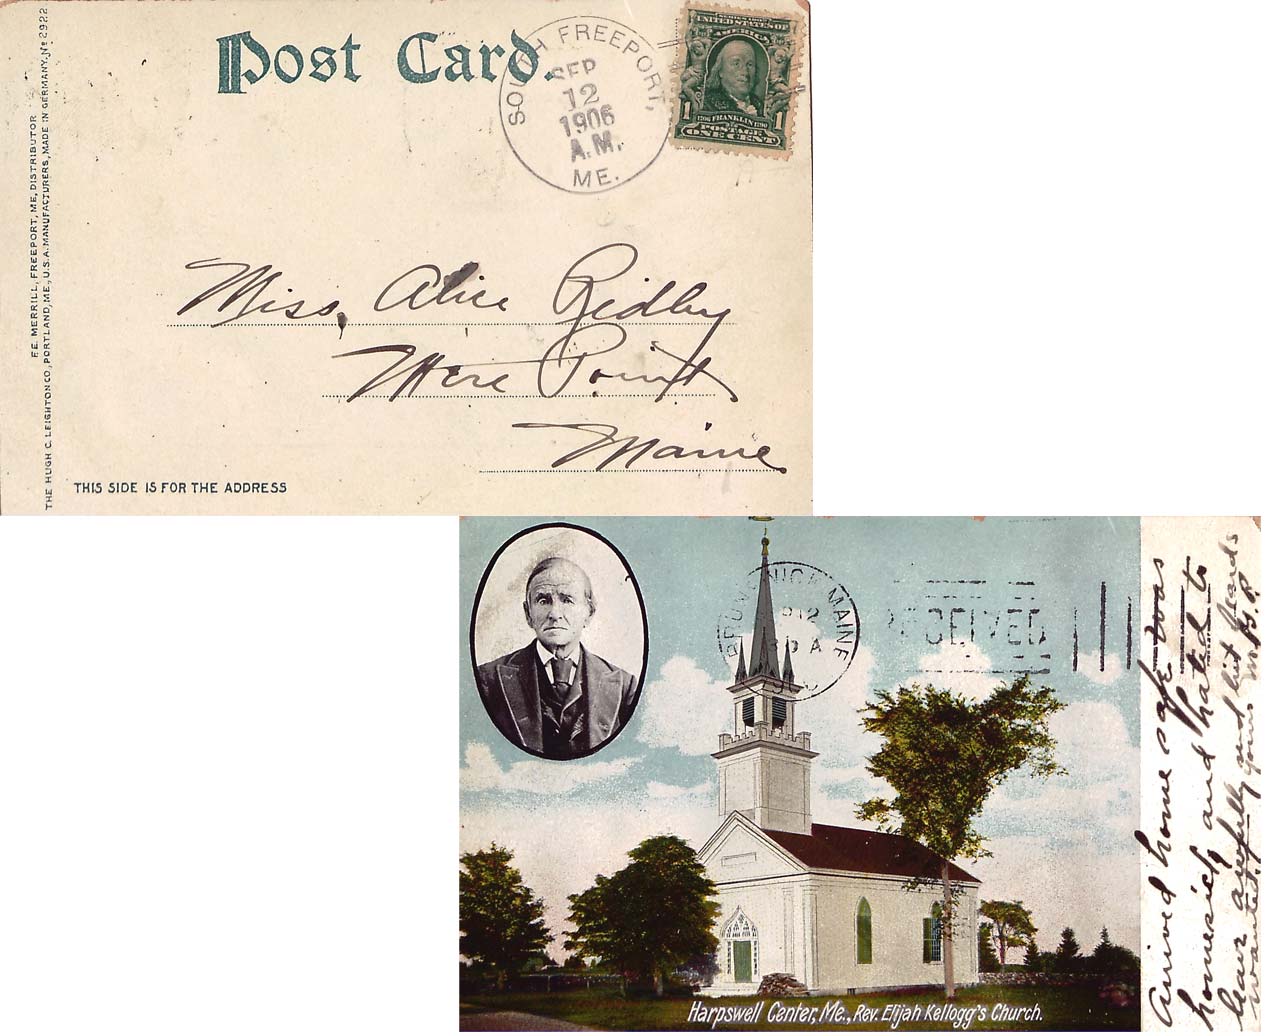 Post Card.
SOUTH FREEPORT,
SEP
12
1906
A.M.
ME.
SERIES 1902
UNITED STATES OF
AMERICA
1706 FRANKLIN 1790
1 POSTAGE 1
ONE CENT
F.E. MERRILL, FREEPORT, ME, DISTRIBUTOR
THE HUGH C. LEIGHTON CO., PORTLAND, ME., U.S.A. MANUFACTURERS, MADE IN GERMANY. No 2922
Miss. Alice Ridley
Mere Point
Maine
THIS SIDE IS FOR THE ADDRESS
BRUNSWICK MAINE
12
A
RECEIVED
Harpswell Center, Me., Rev. Elijah Kellogg's Church.
Arrived home safe was
homesick and hated to
leave awfully and bit hards
wanted. yours M.B.P.